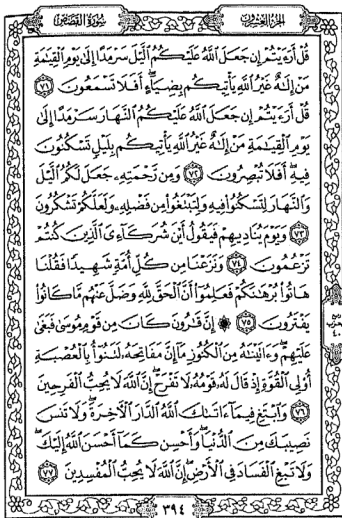 سورة القصص
الجزء العشرون
قُلْ أَرَءَيْتُمْ إِن جَعَلَ ٱللَّهُ عَلَيْكُمُ ٱلَّيْلَ سَرْمَدًا إِلَىٰ يَوْمِ ٱلْقِيَٰمَةِ
مَنْ إِلَٰهٌ غَيْرُ ٱللَّهِ يَأْتِيكُم بِضِيَآءٍ أَفَلَا تَسْمَعُونَ ٧١
قُلْ أَرَءَيْتُمْ إِن جَعَلَ ٱللَّهُ عَلَيْكُمُ ٱلنَّهَارَ سَرْمَدًا إِلَىٰ
يَوْمِ ٱلْقِيَٰمَةِ مَنْ إِلَٰهٌ غَيْرُ ٱللَّهِ يَأْتِيكُم بِلَيْلٍ تَسْكُنُونَ
فِيهِ أَفَلَا تُبْصِرُونَ ٧٢ وَمِن رَّحْمَتِهِۦ جَعَلَ لَكُمُ ٱلَّيْلَ
وَٱلنَّهَارَ لِتَسْكُنُوا۟ فِيهِ وَلِتَبْتَغُوا۟ مِن فَضْلِهِۦ وَلَعَلَّكُمْ تَشْكُرُونَ
٧٣ وَيَوْمَ يُنَادِيهِمْ فَيَقُولُ أَيْنَ شُرَكَآءِىَ ٱلَّذِينَ كُنتُمْ
تَزْعُمُونَ ٧٤ وَنَزَعْنَا مِن كُلِّ أُمَّةٍ شَهِيدًا فَقُلْنَا
هَاتُوا۟ بُرْهَٰنَكُمْ فَعَلِمُوٓا۟ أَنَّ ٱلْحَقَّ لِلَّهِ وَضَلَّ عَنْهُم مَّا كَانُوا۟
يَفْتَرُونَ ٧٥ ۞ إِنَّ قَٰرُونَ كَانَ مِن قَوْمِ مُوسَىٰ فَبَغَىٰ
عَلَيْهِمْ وَءَاتَيْنَٰهُ مِنَ ٱلْكُنُوزِ مَآ إِنَّ مَفَاتِحَهُۥ لَتَنُوٓأُ بِٱلْعُصْبَةِ
أُو۟لِى ٱلْقُوَّةِ إِذْ قَالَ لَهُۥ قَوْمُهُۥ لَا تَفْرَحْ إِنَّ ٱللَّهَ لَا يُحِبُّ ٱلْفَرِحِينَ
٧٦ وَٱبْتَغِ فِيمَآ ءَاتَىٰكَ ٱللَّهُ ٱلدَّارَ ٱلْءَاخِرَةَ وَلَا تَنسَ
نَصِيبَكَ مِنَ ٱلدُّنْيَا وَأَحْسِن كَمَآ أَحْسَنَ ٱللَّهُ إِلَيْكَ
وَلَا تَبْغِ ٱلْفَسَادَ فِى ٱلْأَرْضِ إِنَّ ٱللَّهَ لَا يُحِبُّ ٱلْمُفْسِدِينَ ٧٧
٣٩٤